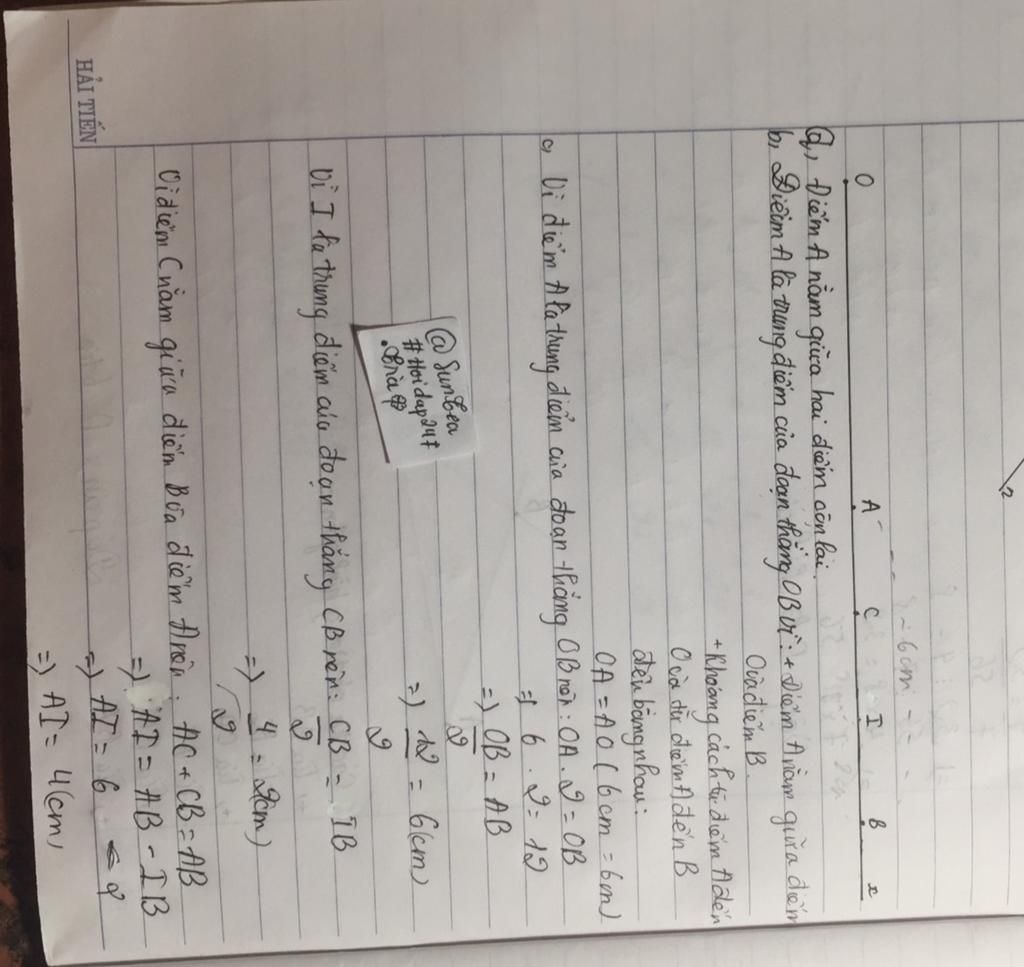 O A C I B x
a, Điểm A nằm giữa hai điểm còn lại.
b, Điểm A là trung điểm của đoạn thẳng OB vì: + Điểm A nằm giữa điểm
O và điểm B.
+ Khoảng cách từ điểm A đến
O và từ điểm A đến B
đều bằng nhau:
OA = AO (6cm = 6m)
c, Vì điểm A là trung điểm của đoạn thẳng OB nên: OA . 2 = OB
=> 6 . 2 = 12
=> OB/2 = AB
@SunLea
#Hoidap247
=> 12/2 = 6(cm)
Vì I là trung điểm của đoạn thẳng CB nên: CB/2 = IB
=> 4/2 = 2cm)
Vì điểm C nằm giữa điểm B và điểm A nên: AC + CB = AB
=> AI = AB - IB
=> AI = 6 - 2
=> AI = 4(cm)
HẢI TIẾN